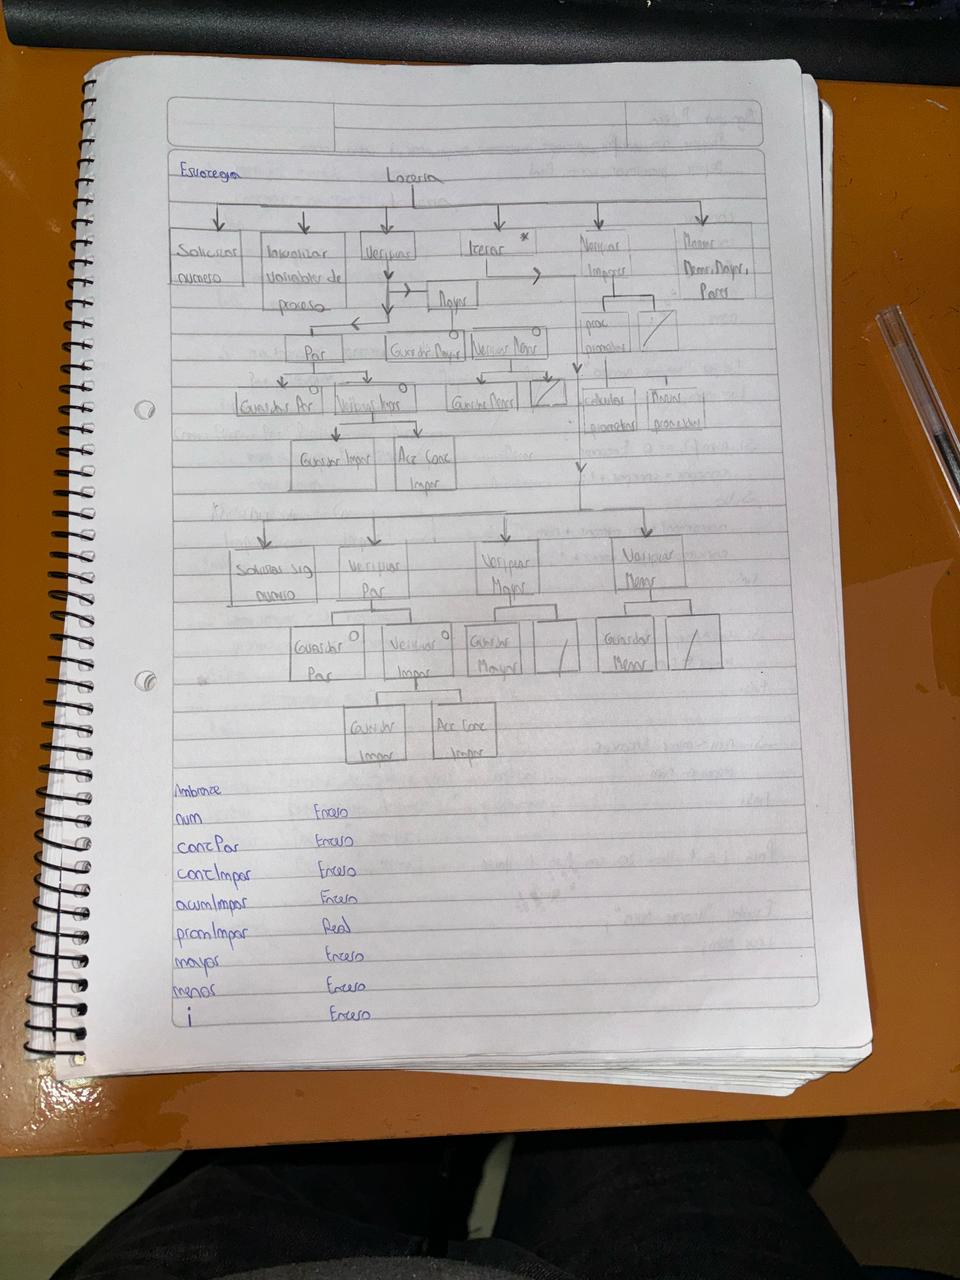 Estrategia
Loteria
Solicitar numero
Inicializar variables de proceso
Verificar
Iterar *
Verificar Impares
Mostrar Menor, Mayor, Pares
Mayor
Par
Guardar Mayor
Verificar Menor
proc promedio
Guardar Par
Verificar Impar
Guardar Menor
calcular promedio
Mostrar promedio
Guardar Impar
Acc Cont Impar
Solicitar sig numero
Verificar Par
Verificar Mayor
Verificar Menor
Guardar Par
Verificar Impar
Guardar Mayor
Guardar Menor
Guardar Impar
Acc Cont Impar
Ambiente
num Entero
contPar Entero
contImpar Entero
acumImpar Entero
promImpar Real
mayor Entero
menor Entero
i Entero